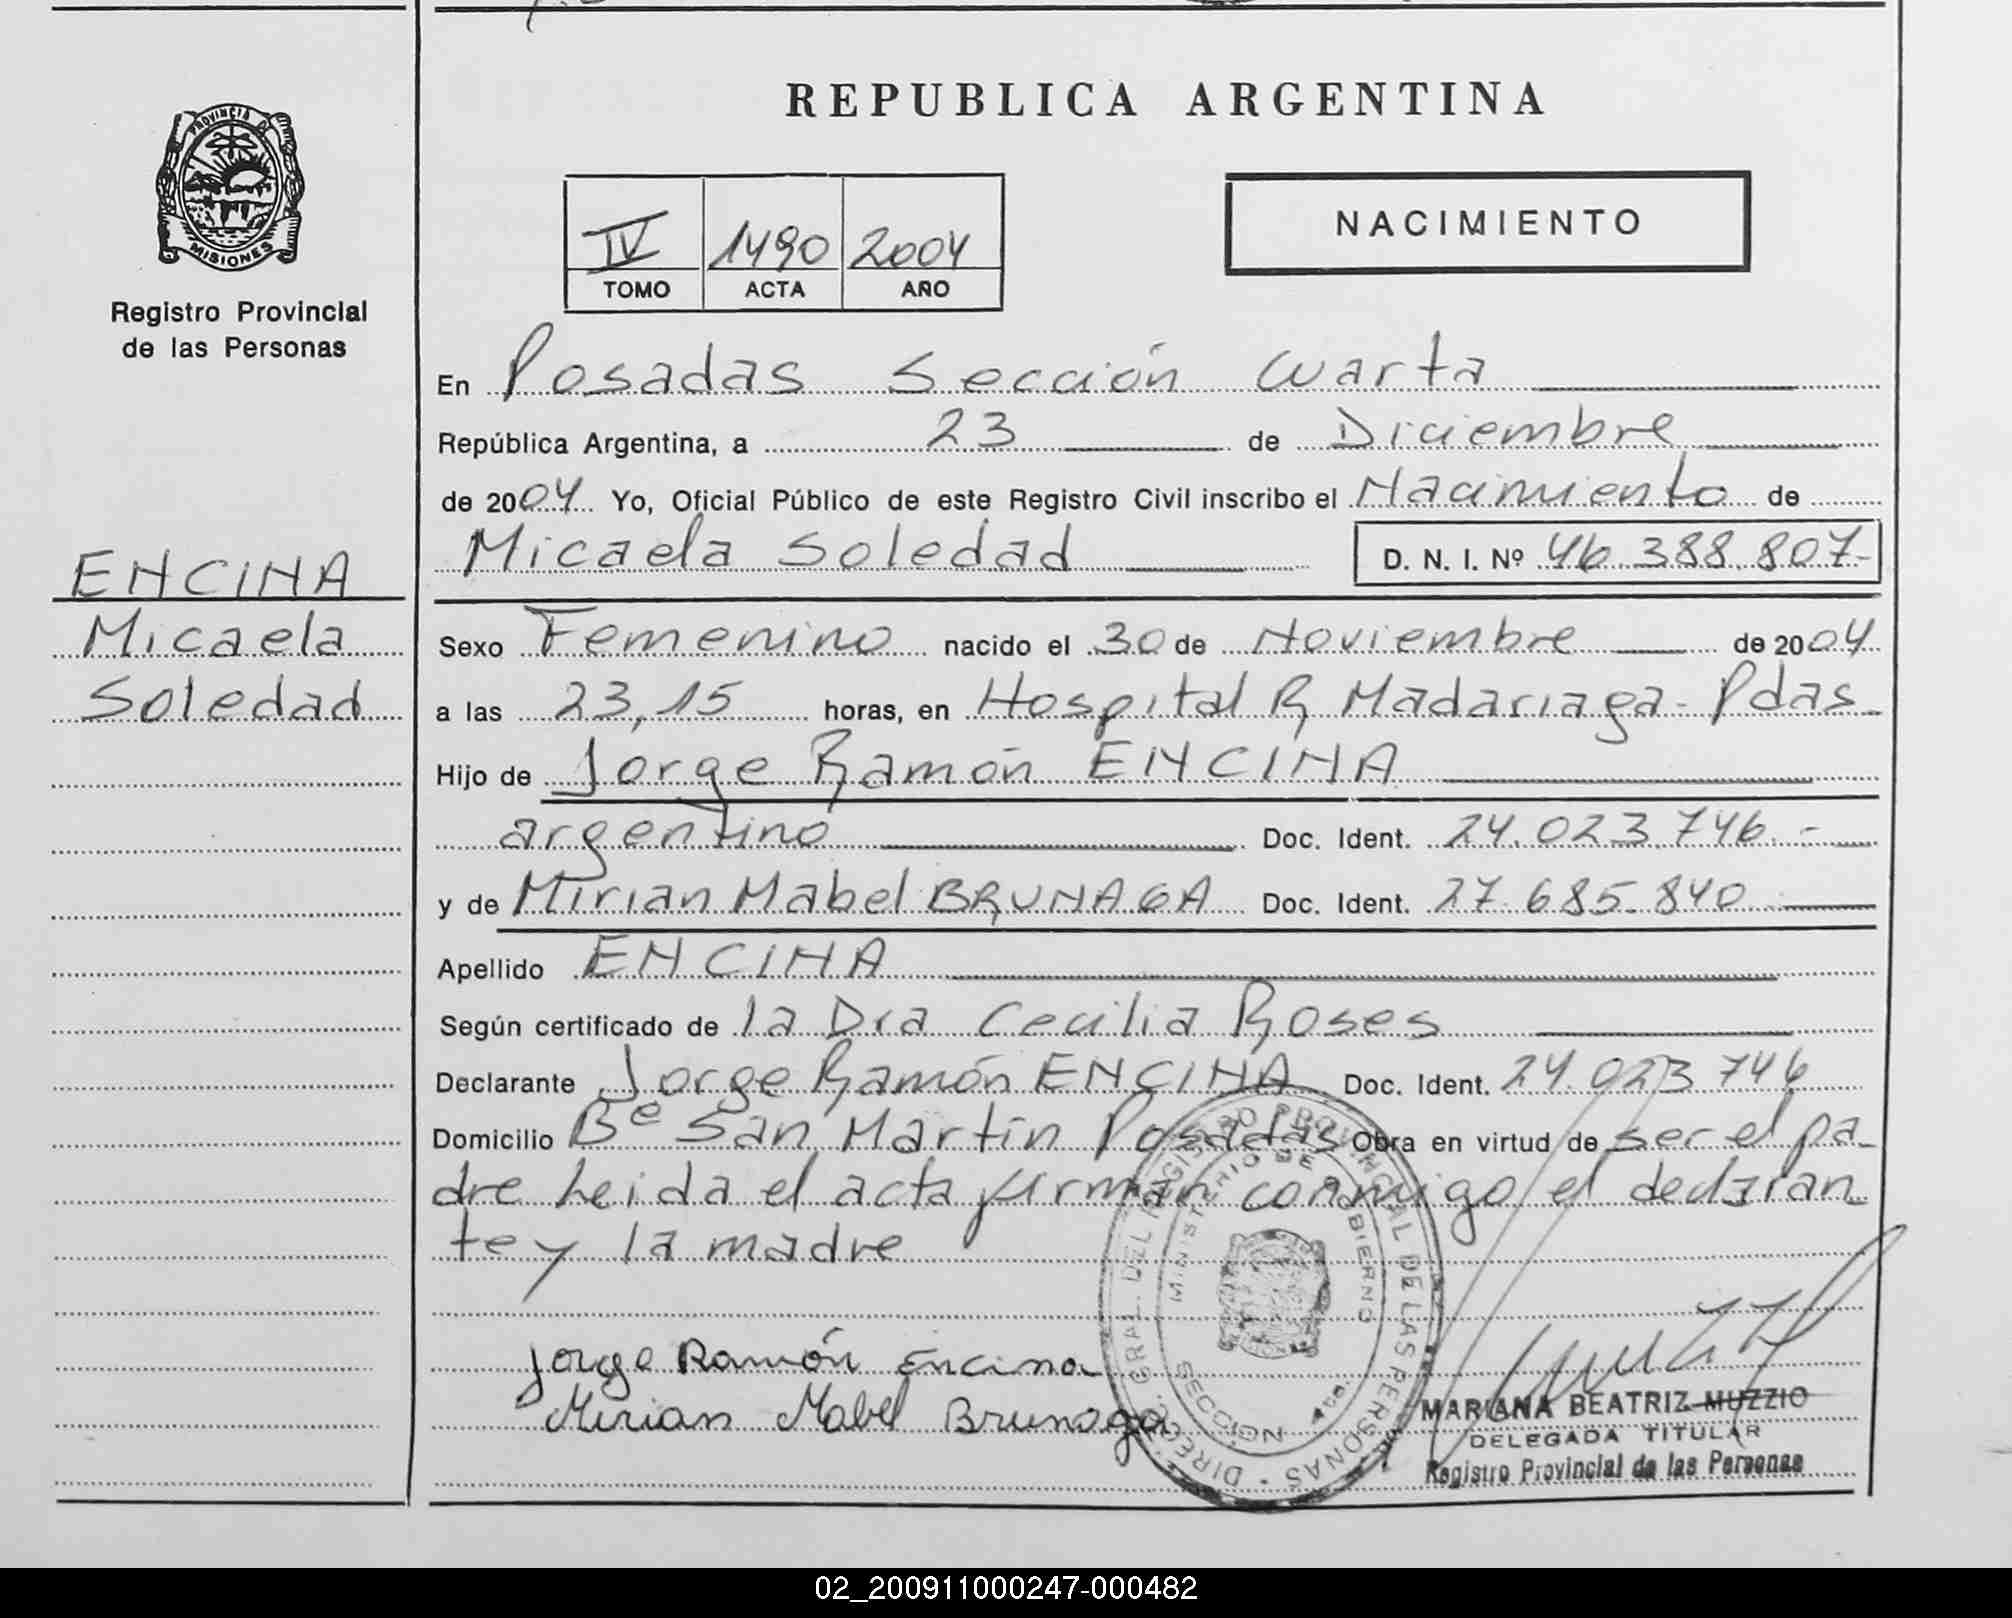 PROVINCIA DE
MISIONES
Registro Provincial
de las Personas
ENCINA
Micaela
Soledad
REPUBLICA ARGENTINA
IV 1490 2004
TOMO ACTA AÑO
NACIMIENTO
En Posadas Sección Cuarta
República Argentina, a 23 de Diciembre
de 2004 Yo, Oficial Público de este Registro Civil inscribo el Nacimiento de
Micaela Soledad D. N. I. Nº 46.388.807-
Sexo Femenino nacido el 30 de Noviembre de 2004
a las 23,15 horas, en Hospital R Madariaga - Pdas
Hijo de Jorge Ramón ENCINA
argentino Doc. Ident. 24.023.746.-
y de Mirian Mabel BRUNAGA Doc. Ident. 27.685.840
Apellido ENCINA
Según certificado de la Dra Cecilia Roses
Declarante Jorge Ramón ENCINA Doc. Ident. 24.023.746
Domicilio Bº San Martín Posadas Obra en virtud de ser el pa-
dre Leida el acta firman conmigo el declaran
te y la madre
Jorge Ramón Encina
Mirian Mabel Brunaga
DIREC. GRAL. DEL REGISTRO PROVINCIAL DE LAS PERSONAS
MINISTERIO DE GOBIERNO
SECCION 4ta.
MARIANA BEATRIZ MUZZIO
DELEGADA TITULAR
Registro Provincial de las Personas
02_200911000247-000482